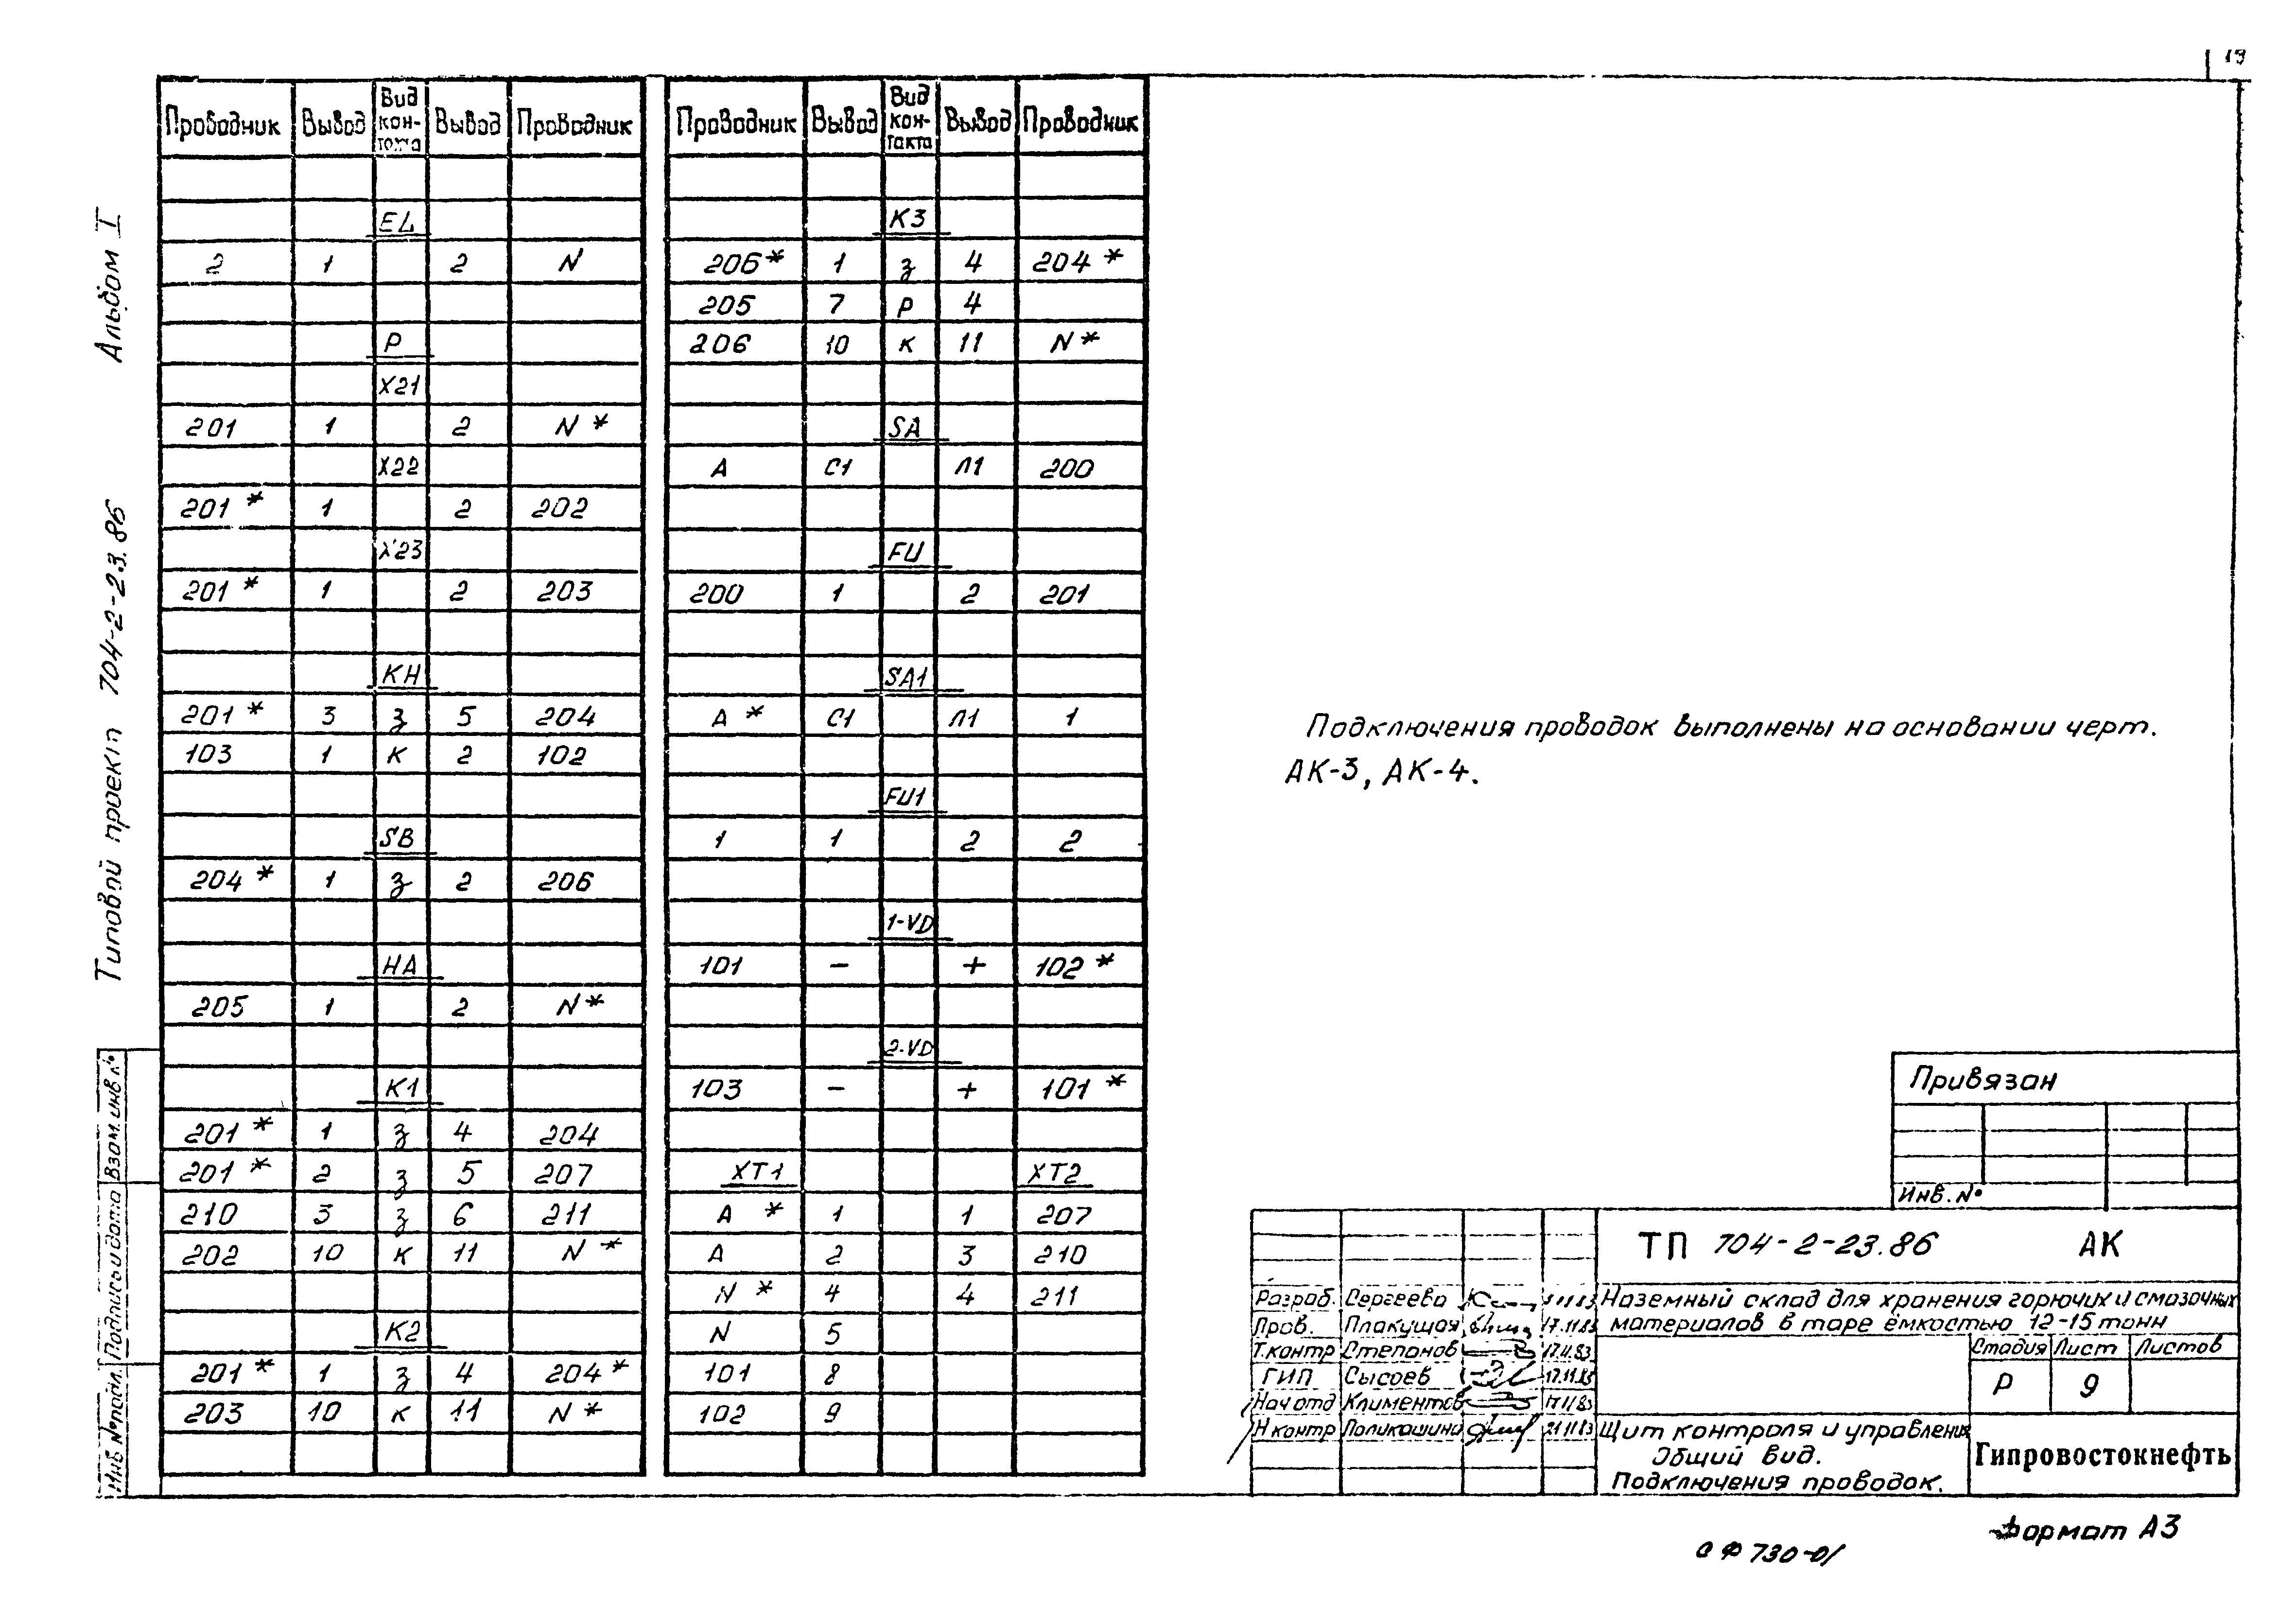 19
Альбом I
Типовой проект 704-2-23.86
Проводник Вывод Вид кон-такта Вывод Проводник
EL
2 1 2 N
P
X21
201 1 2 N*
X22
201* 1 2 202
X23
201* 1 2 203
KH
201* 3 з 5 204
103 1 к 2 102
SB
204* 1 з 2 206
HA
205 1 2 N*
K1
201* 1 з 4 204
201* 2 з 5 207
210 3 з 6 211
202 10 к 11 N*
K2
201* 1 з 4 204*
203 10 к 11 N*
Проводник Вывод Вид кон-такта Вывод Проводник
K3
206* 1 з 4 204*
205 7 р 4
206 10 к 11 N*
SA
A C1 Л1 200
FU
200 1 2 201
SA1
A* C1 Л1 1
FU1
1 1 2 2
1-VD
101 − + 102*
2-VD
103 − + 101*
XT1 XT2
A* 1 1 207
A 2 3 210
N* 4 4 211
N 5
101 8
102 9
Подключения проводок выполнены на основании черт.
АК-3, АК-4.
Привязан
Инв. №
ТП 704-2-23.86 АК
Разраб. Сергеева
Пров. Плакущая 17.11.83
Т.контр Степанов 17.11.83
ГИП Сысоев 17.11.83
Нач отд Климентов 17.11.83
Н контр Поликашина 21.11.83
Наземный склад для хранения горючих и смазочных
материалов в таре ёмкостью 12-15 тонн
Стадия Лист Листов
Р 9
Щит контроля и управления
Общий вид.
Подключения проводок.
Гипровостокнефть
Инв № подл. Подпись и дата Взам. инв №
Формат А3
СФ 730-01